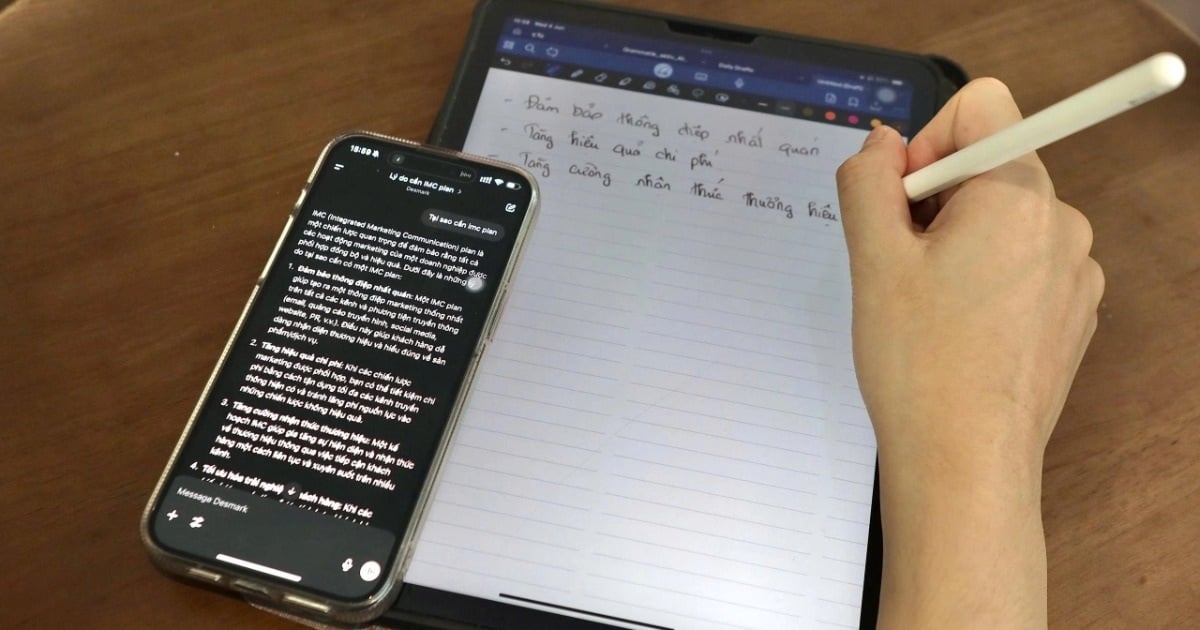 15:59
Lý do cần IMC plan >
Desmark
Tại sao cần imc plan
IMC (Integrated Marketing Communication) plan là
một chiến lược quan trọng để đảm bảo rằng tất cả
các hoạt động marketing của một doanh nghiệp được
phối hợp đồng bộ và hiệu quả. Dưới đây là những
do tại sao cần có một IMC plan:
1. Đảm bảo thông điệp nhất quán: Một IMC plan
giúp tạo ra một thông điệp marketing thống nhất
trên tất cả các kênh và phương tiện truyền thông
(email, quảng cáo truyền hình, social media,
website, PR, v.v.). Điều này giúp khách hàng dễ
dàng nhận diện thương hiệu và hiểu đúng về sản
phẩm/dịch vụ.
2. Tăng hiệu quả chi phí: Khi các chiến lược
marketing được phối hợp, bạn có thể tiết kiệm chi
phí bằng cách tận dụng tối đa các kênh truyền
thông hiện có và tránh lãng phí nguồn lực vào
những chiến lược không hiệu quả.
3. Tăng cường nhận thức thương hiệu: Một kế
hoạch IMC giúp gia tăng sự hiện diện và nhận thức
về thương hiệu thông qua việc tiếp cận khách
hàng một cách liên tục và xuyên suốt trên nhiều
kênh.
4. Tối ưu hóa trải hàng: Khi các
Message Desmark
Daily Drafts
Untitled (Draft)
- Đảm bảo thông điệp nhất quán
- Tăng hiệu quả chi phí
- Tăng cường nhận thức thương hiệu